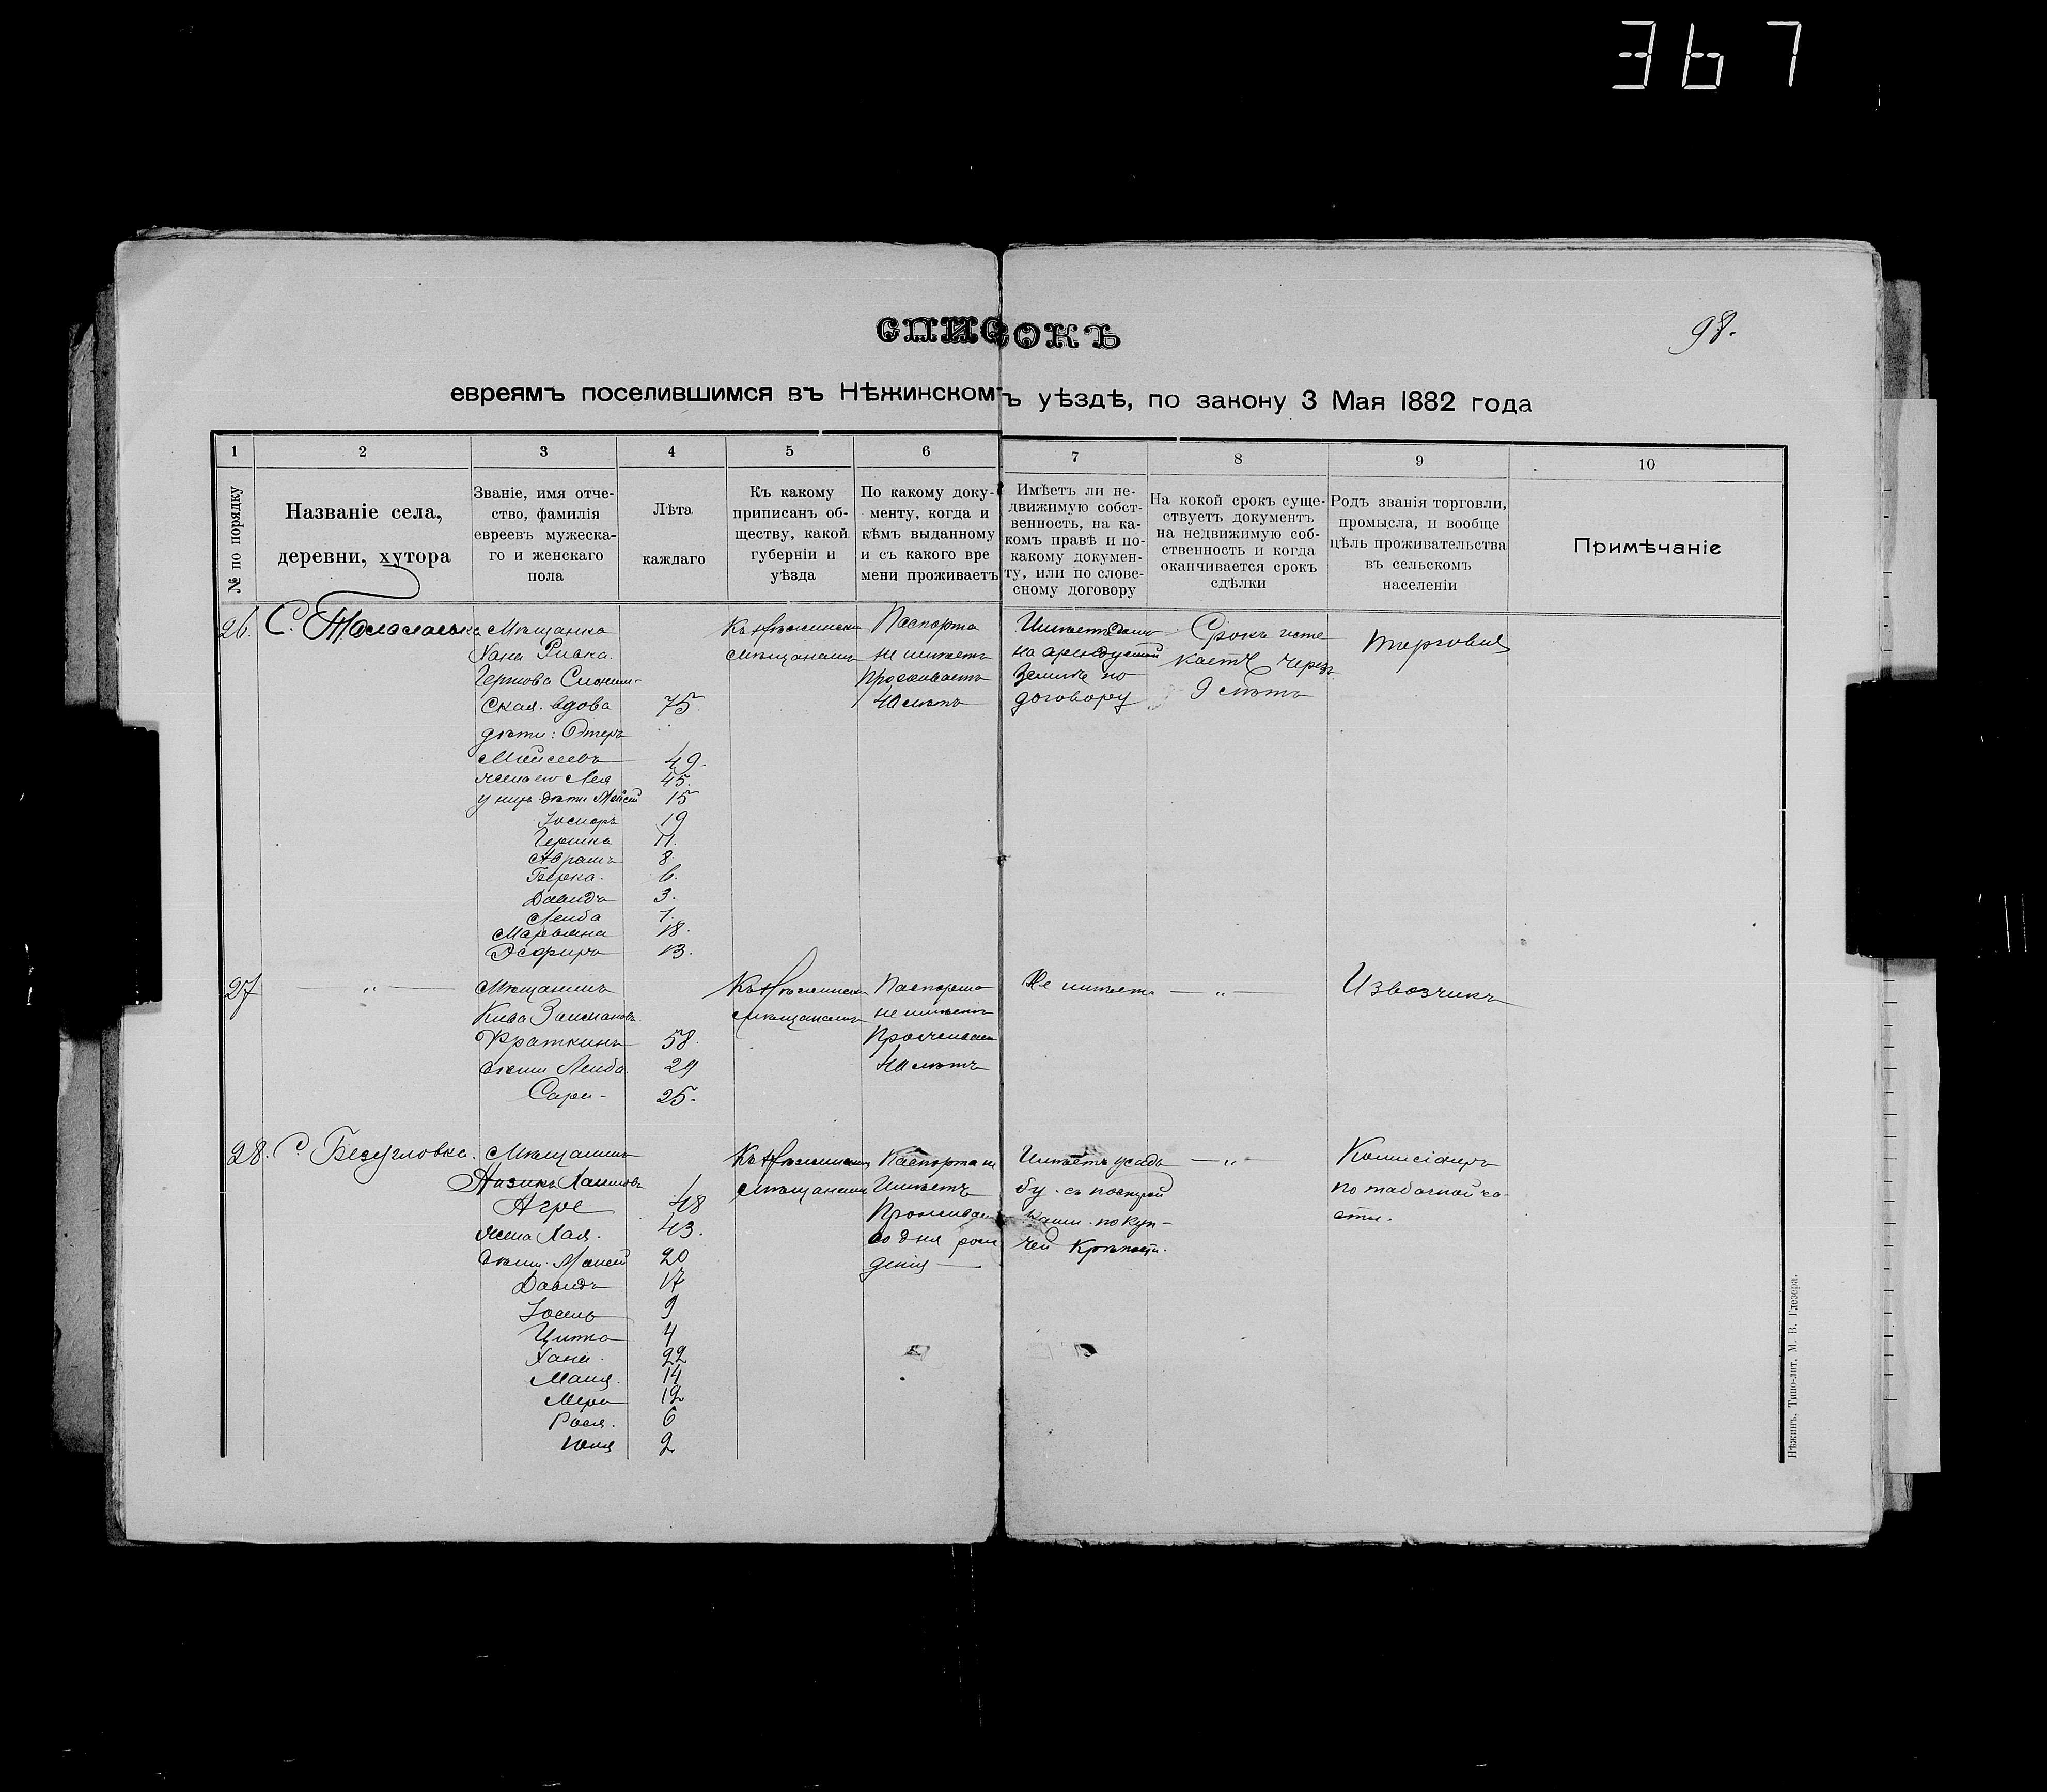 367
98.
СПИСОКЪ
евреямъ поселившимся въ Нѣжинскомъ уѣздѣ, по закону 3 Мая 1882 года
1 2 3 4 5 6 7 8 9 10
№ по порядку
Названіе села,
деревни, хутора
Званіе, имя отче-
ство, фамилія
евреевъ мужеска-
го и женскаго
пола
Лѣта
каждаго
Къ какому
приписанъ об-
ществу, какой
губерніи и
уѣзда
По какому доку-
менту, когда и
кѣмъ выданному
и съ какого вре
мени проживаетъ
Имѣетъ ли не-
движимую собст-
венность, на ка-
комъ правѣ и по-
какому докумен-
ту, или по слове-
сному договору
На кокой срокъ суще-
ствуетъ документъ
на недвижимую соб-
ственность и когда
оканчивается срокъ
сдѣлки
Родъ званія торговли,
промысла, и вообще
цѣль проживательства
въ сельскомъ
населеніи
Примѣчаніе
26.
С. Талалаевка
Мѣщанка
Хана Ривка
Гершова Слоним-
ская вдова 75
дѣти:
Моисеевъ 49.
жена его Лея 45.
у нихъ дѣти Мойсей 15
Іосифъ 19
Гершка 11.
Абрамъ 8.
Берка 6.
Давидъ 3.
Лейба 1.
18.
Эсфирь 13.
Къ Нѣжинскимъ
мѣщанамъ
Паспорта
не имѣетъ
Проживаетъ
40 лѣтъ
Имѣетъ домъ
на арендуемой
землѣ по
договору
Срокъ исте
каетъ черезъ
9 лѣтъ
Торговля
27
— „ —
Мѣщанинъ
Кива Залмановъ
Фраткинъ 58.
дѣти Лейба 29
Сара 25.
Къ Нѣжинскимъ
мѣщанамъ
Паспорта
не имѣетъ
Проживаетъ
40 лѣтъ
Не имѣетъ
— „ —
Извозчикъ
28.
С. Безугловка
Мѣщанинъ
Хаимовъ
Агре 48
жена Хая 43.
дѣти Моисей 20
Давидъ 17
Іосель 9
4
Хана 22
Маня 14
Мера 12
Рося 6
2
Къ Нѣжинскимъ
мѣщанамъ
Паспорта не
Имѣетъ
Проживаетъ
со дня рож
денія
Имѣетъ усадь
бу съ построй
ками по куп-
чей крѣпости.
— „ —
Комисіонеръ
по табачной ча-
сти.
Нѣжинъ, Типо-лит. М. В. Глезера.